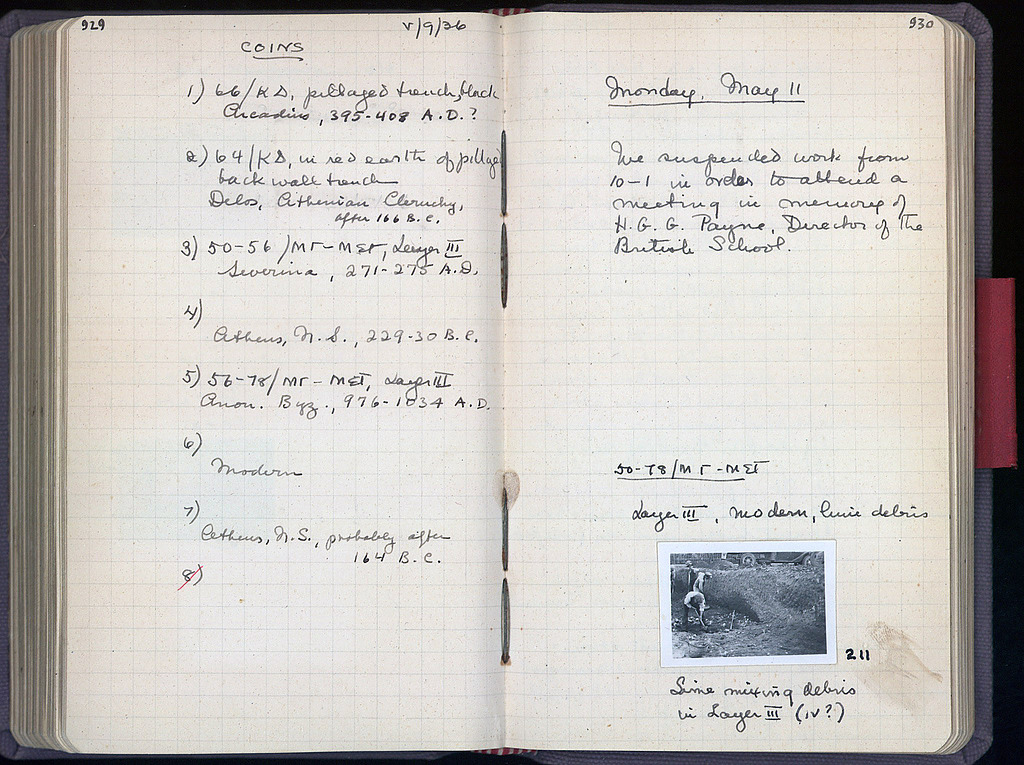 929
V/9/36
COINS
1) 66/ΚΔ, pillaged trench, black
Arcadius, 395-408 A.D.?
2) 64/ΚΔ, in red earth of pillaged
back wall trench
Delos, Athenian Cleruchy,
after 166 B.C.
3) 50-56/ΜΓ-ΜΣΤ, Layer III
Severina, 271-275 A.D.
4)
Athens, N.S., 229-30 B.C.
5) 56-78/ΜΓ-ΜΣΤ, Layer III
Anon. Byz., 976-1034 A.D.
6)
Modern
7)
Athens, N.S., probably after
164 B.C.
8)
930
Monday, May 11
We suspended work from
10-1 in order to attend a
meeting in memory of
H.G.G. Payne, Director of the
British School.
50-78/ΜΓ-ΜΣΤ
Layer III, modern, lime debris
211
Lime mixing debris
in Layer III (IV?)